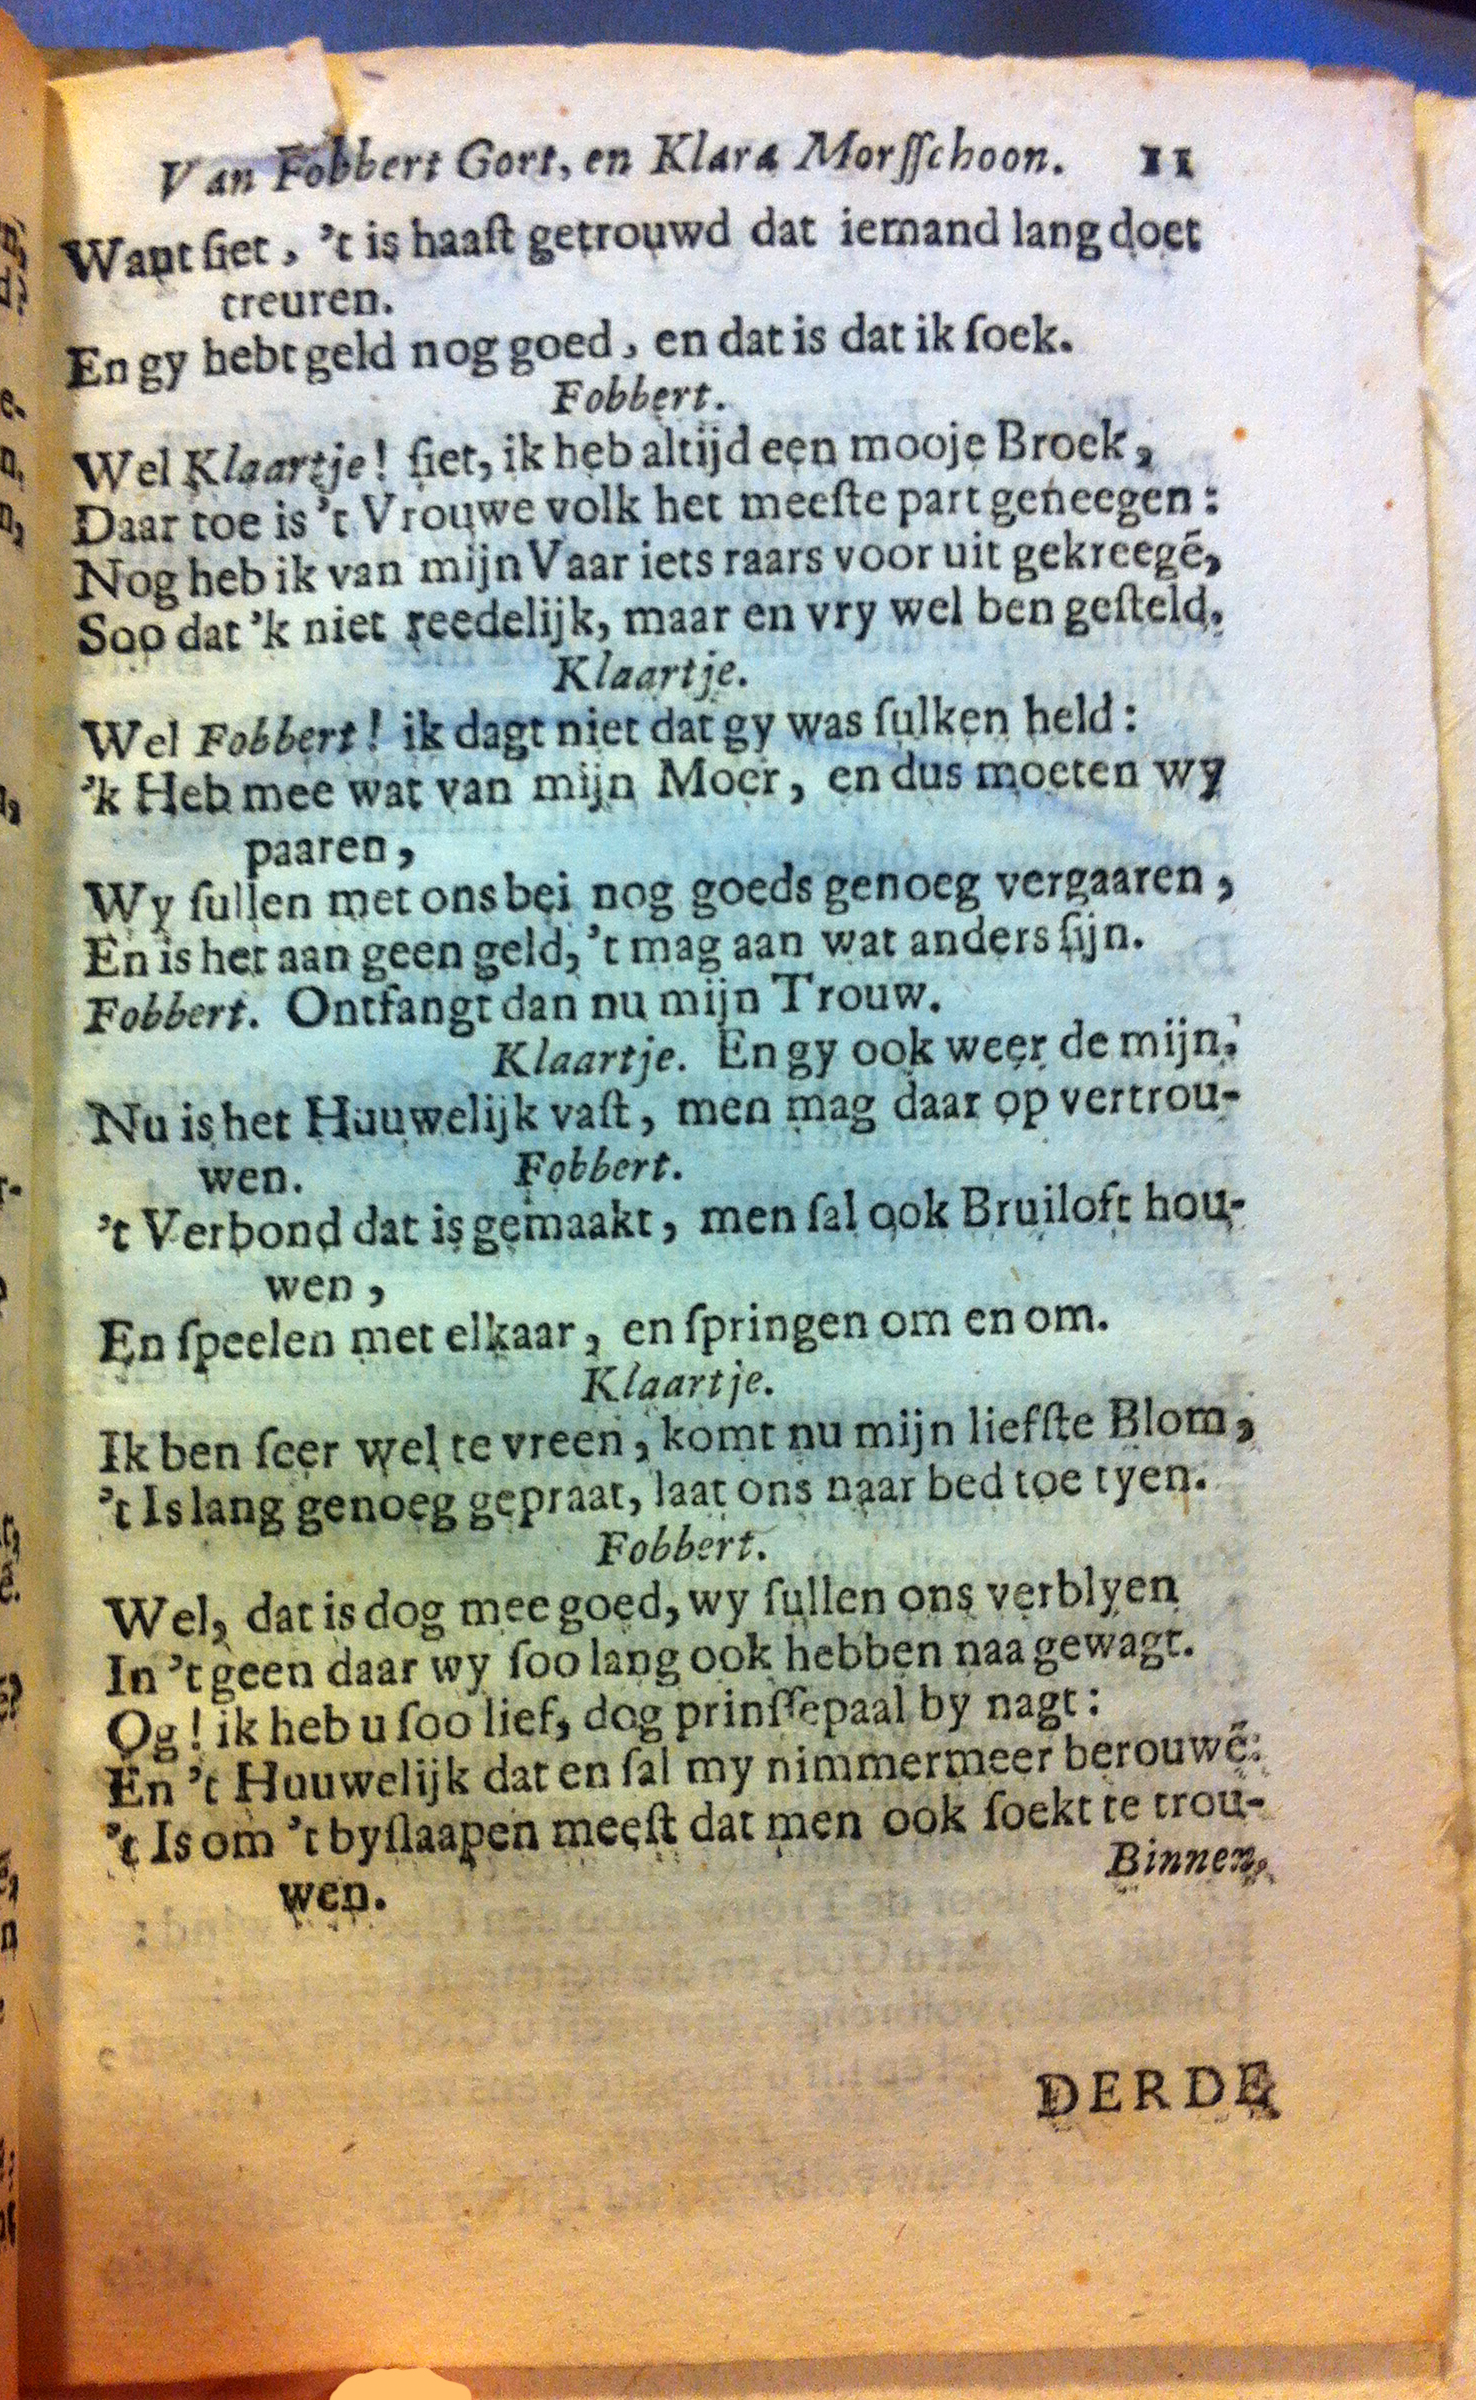 Van Fobbert Gort, en Klara Morsſchoon. 11
Want ſiet, 't is haaſt getrouwd dat iemand lang doet
treuren.
En gy hebt geld nog goed, en dat is dat ik ſoek.
Fobbert.
Wel Klaartje! ſiet, ik heb altijd een mooje Broek,
Daar toe is 't Vrouwe volk het meeſte part geneegen:
Nog heb ik van mijn Vaar iets raars voor uit gekreegē,
Soo dat 'k niet reedelijk, maar en vry wel ben geſteld.
Klaartje.
Wel Fobbert! ik dagt niet dat gy was ſulken held:
'k Heb mee wat van mijn Moer, en dus moeten wy
paaren,
Wy ſullen met ons bei nog goeds genoeg vergaaren,
En is het aan geen geld, 't mag aan wat anders ſijn.
Fobbert. Ontfangt dan nu mijn Trouw.
Klaartje. En gy ook weer de mijn.
Nu is het Huuwelijk vaſt, men mag daar op vertrou-
wen. Fobbert.
't Verbond dat is gemaakt, men ſal ook Bruiloft hou-
wen,
En ſpeelen met elkaar, en ſpringen om en om.
Klaartje.
Ik ben ſeer wel te vreen, komt nu mijn liefſte Blom,
't Is lang genoeg gepraat, laat ons naar bed toe tyen.
Fobbert.
Wel, dat is dog mee goed, wy ſullen ons verblyen
In 't geen daar wy ſoo lang ook hebben naa gewagt.
Og! ik heb u ſoo lief, dog prinſſepaal by nagt:
En 't Huuwelijk dat en ſal my nimmermeer berouwē:
't Is om 't byſlaapen meeſt dat men ook ſoekt te trou-
wen. Binnen.
DERDE